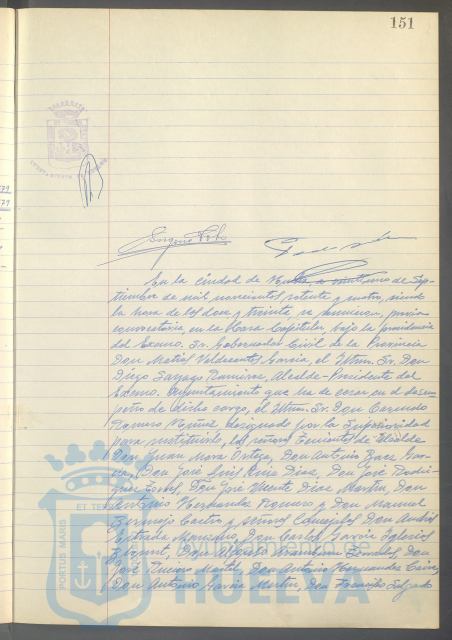 151
En la ciudad de Huelva, a veintiuno de Sep-
tiembre de mil novecientos setenta y cuatro, siendo
la hora de las doce y treinta se reunieron, previa
convocatoria, en la Casa Capitular bajo la presidencia
del Excmo. Sr. Gobernador Civil de la Provincia
Don Matías Valdecantos García, el Iltmo. Sr. Don
Diego Sayago Ramírez, Alcalde-Presidente del
Excmo. Ayuntamiento que ha de cesar en el desem-
peño de dicho cargo, el Iltmo. Sr. Don Carmelo
Romero designado por la Superioridad
para sustituirlo, los señores Tenientes de Alcalde
Don Juan Mora Ortega, Don Antonio Baez
Don José Luis Ruiz Diaz, Don José Rodri-
guez Don José Vicente Diaz Martin, Don
Antonio Hernandez Romero y Don Manuel
Bermejo Castro y señores Concejales Don Andrés
Estrada Manzano, Don Carlos García Iglesias
Don Alfonso Don
José Don Antonio Hernandez
Don Antonio García Martin, Don Francisco Delgado
PORTUS MARIS
ET TER
HUELVA